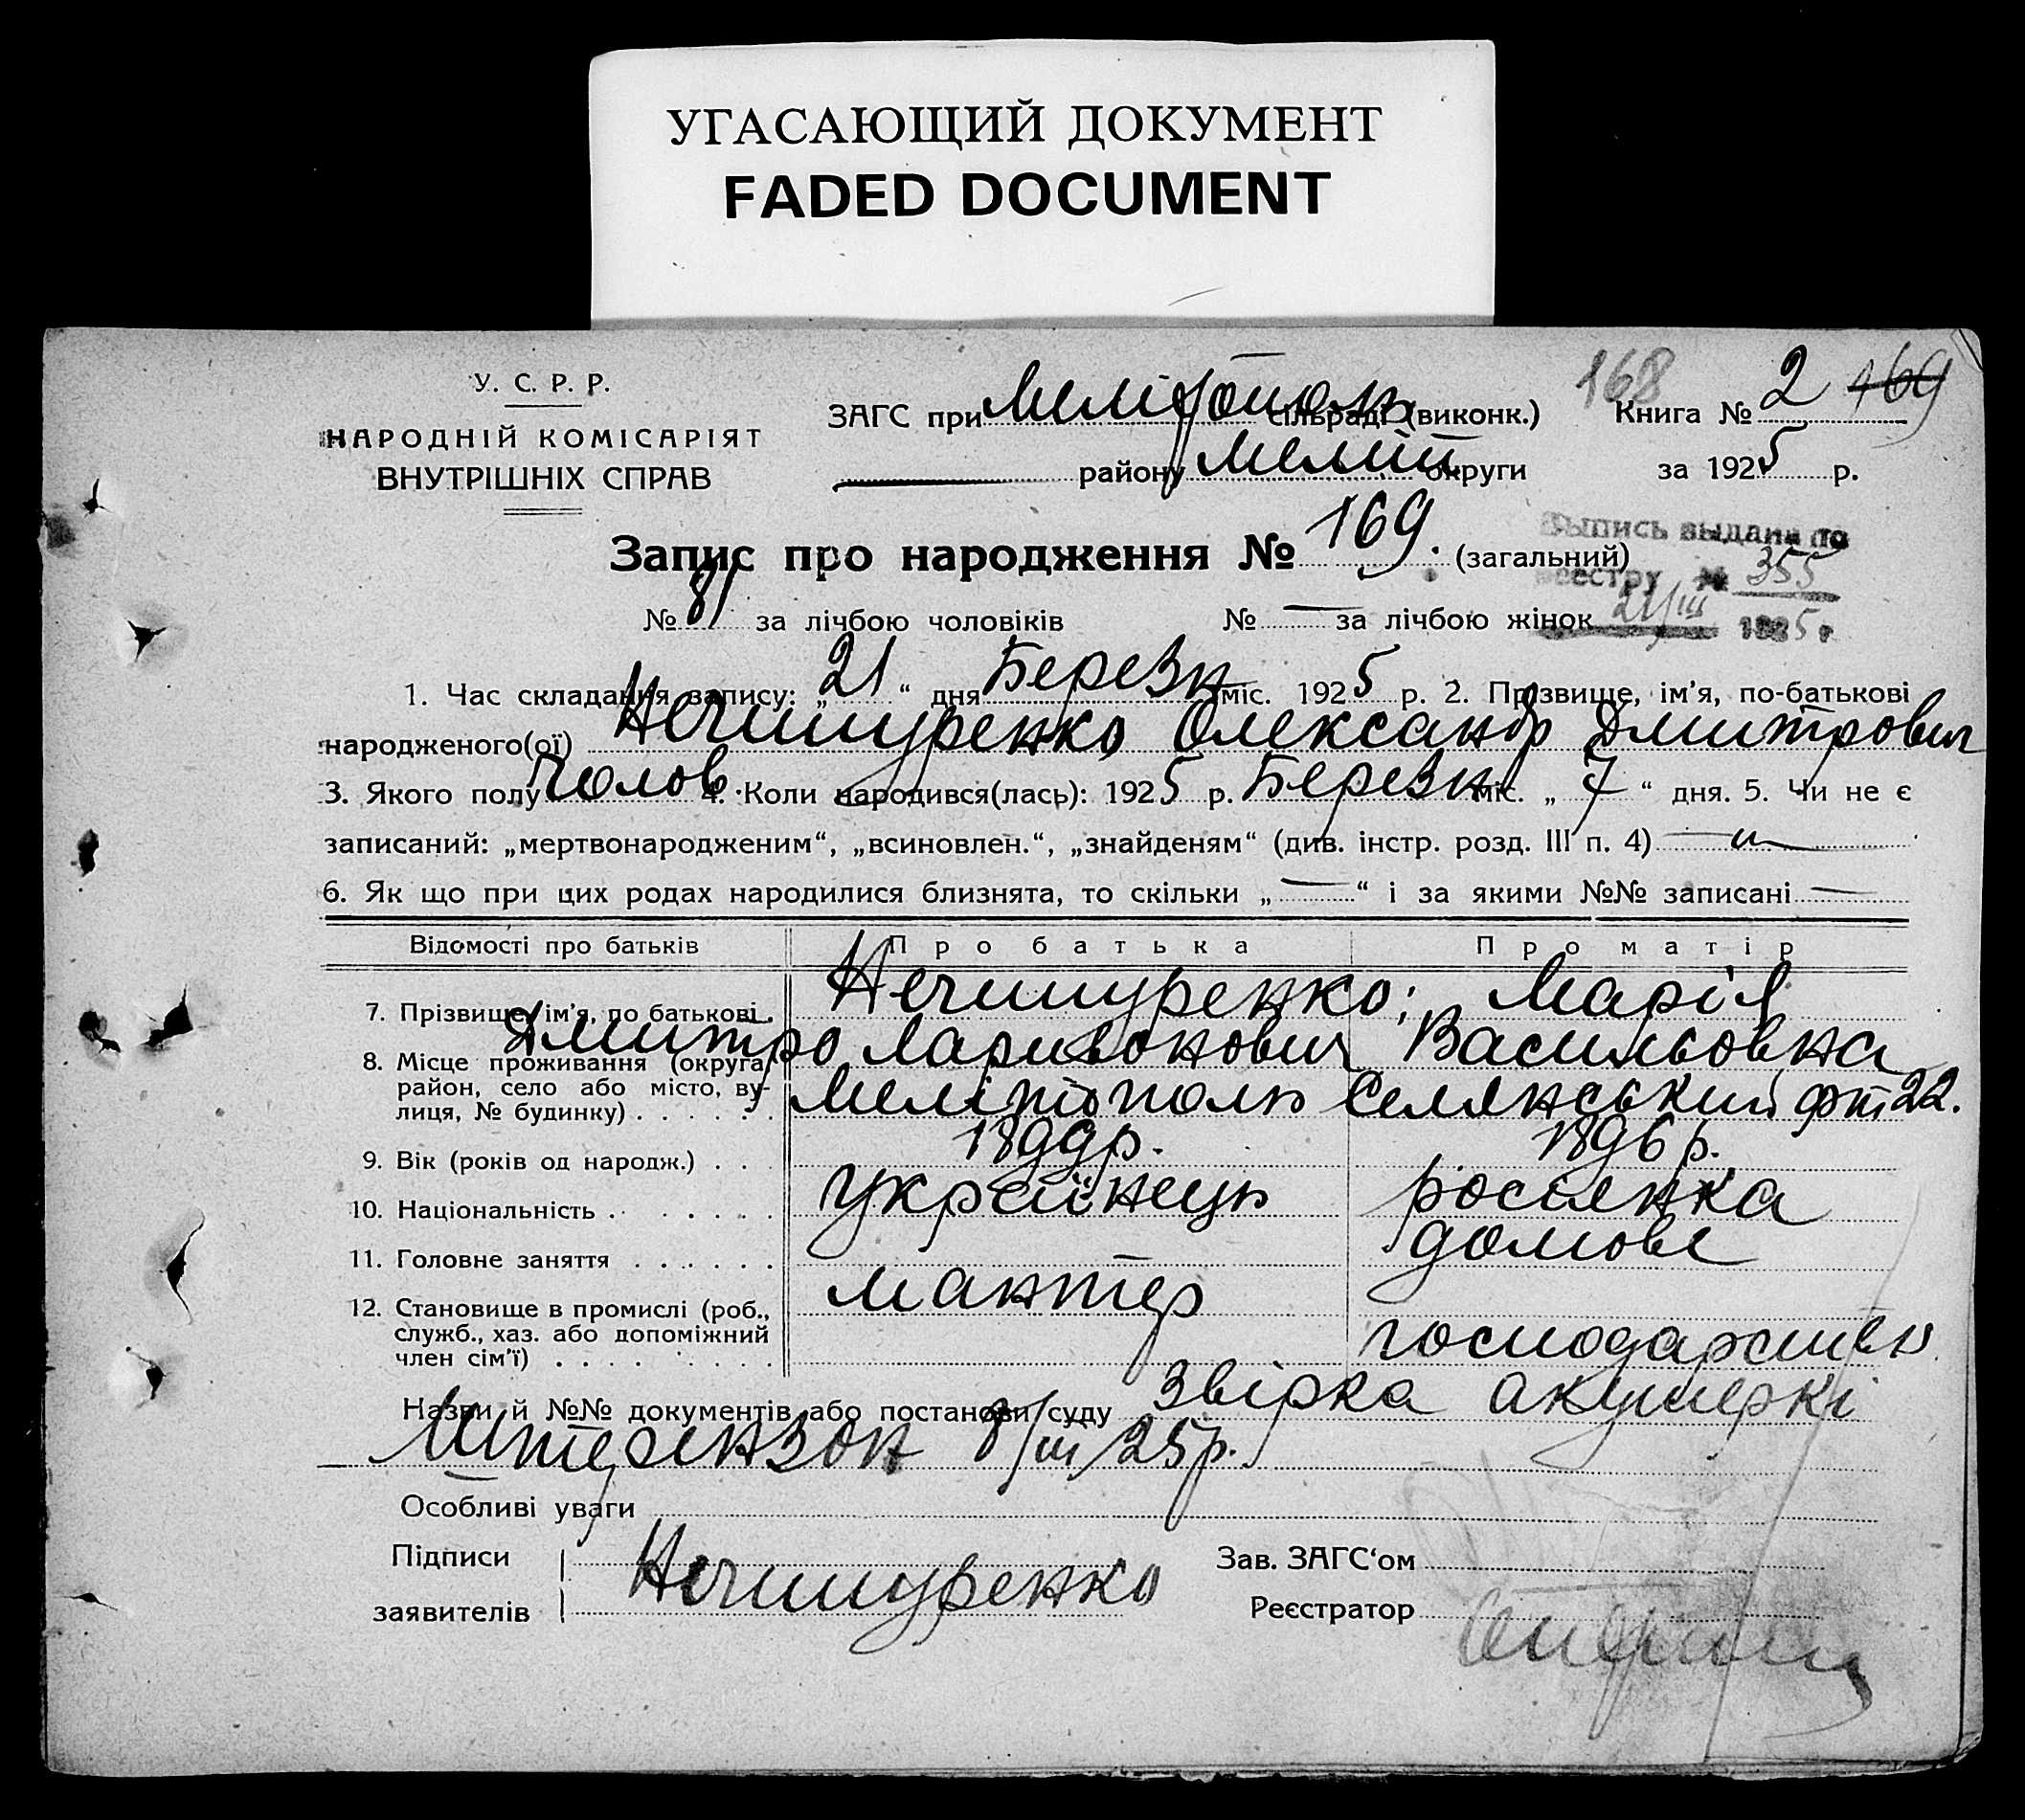 УГАСАЮЩИЙ ДОКУМЕНТ
FADED DOCUMENT
У. С. Р. Р.
НАРОДНІЙ КОМІСАРІЯТ
ВНУТРІШНІХ СПРАВ
ЗАГС при Мелітополь сільраді (виконк.)
району Меліт округи
168 Книга № 2 169
за 1925 р.
Запис про народження № 169. (загальний)
Выпись выдана по
реестру № 355
21/III 1925 г
№ 81 за лічбою чоловіків № — за лічбою жінок
1. Час складання запису: „21“ дня Березн міс. 1925 р. 2. Прізвище, ім’я, по-батькові
народженого(ої) Нечишуренко Олександр Дмитрович
3. Якого полу Чолов. 4. Коли народився(лась): 1925 р. Березн міс. „7“ дня. 5. Чи не є
записаний: „мертвонародженим“, „всиновлен.“, „знайденям“ (див. інстр. розд. III п. 4) —
6. Як що при цих родах народилися близнята, то скільки „—“ і за якими №№ записані —
Відомості про батьків Про батька Про матір
7. Прізвище, ім’я, по батькові . Нечишуренко; Марія
Дмитро Ларивонович Васильовна
8. Місце проживання (округа,
район, село або місто, ву-
лиця, № будинку) . . . . . . Мелітополь Селянський 22.
9. Вік (років од народж.) . . . 1899р. 1896 р.
10. Національність . . . . . . . українець росіянка
11. Головне заняття . . . . . . домове
мантер
12. Становище в промислі (роб.,
служб., хаз. або допоміжний
член сім’ї) . . . . . . . . . господарство
Назви й №№ документів або постанови суду Звірка акушеркі
Штерензон 8/III/25р.
Особливі уваги
Підписи
заявителів Нечишуренко
Зав. ЗАГС‘ом
Реєстратор